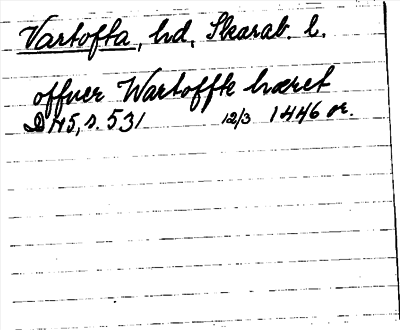 Vartofta, hd, Skarab. l.
offuer Wartoffte hæret
DN5, s. 531 12/3 1446 or.